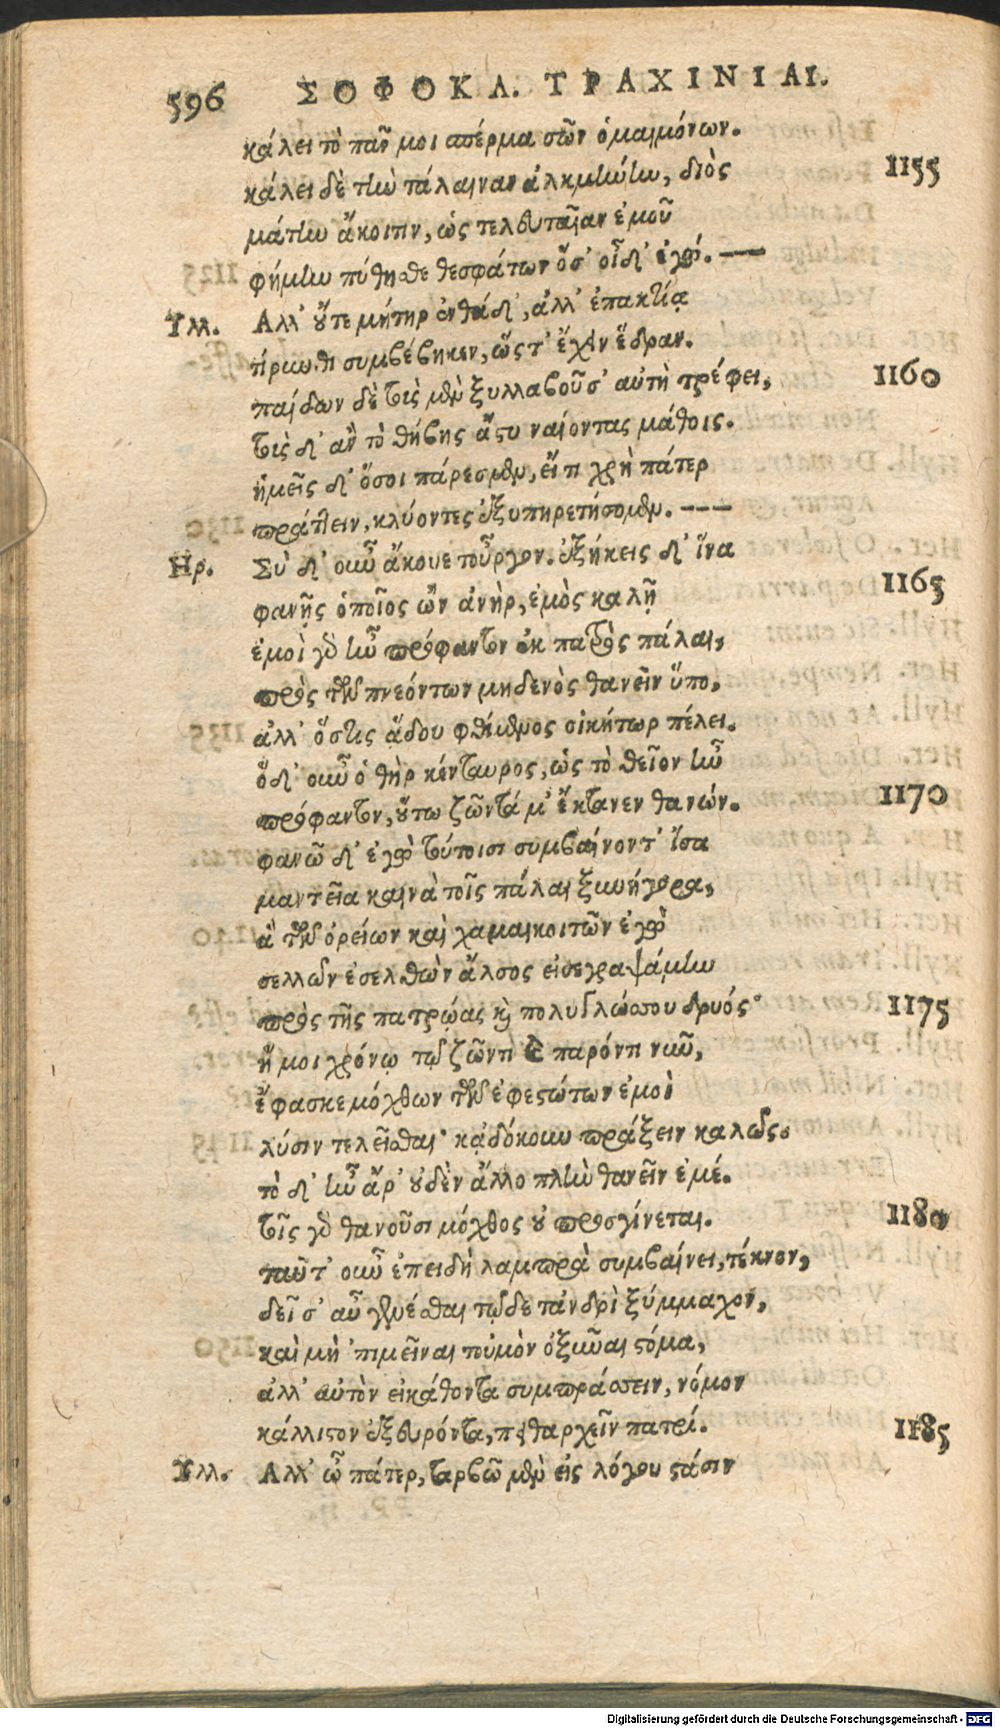 596 ΣΟΦΟΚΛ. ΤΡΑΧΙΝΙΑΙ.
κάλει τὸ πᾶν μοι σπέρμα σῶν ὁμαιμόνων.
κάλει δὲ τὴν τάλαιναν ἀλκμήνην, διὸς 1155
μάτην ἄκοιτιν, ὡς τελευταῖαν ἐμοῦ
φήμην πύθησθε θεσφάτων ὅσ' οἶδ' ἐγώ. ---
Υλλ. Αλλ' οὔτε μήτηρ ἐνθάδ', ἀλλ' ἐπακτίᾳ
τίρυνθι συμβέβηκεν, ὥστ' ἔχειν ἕδραν.
παίδων δὲ τοὺς μὲν ξυλλαβοῦσ' αὐτὴ τρέφει, 1160
τοὺς δ' ἂν τὸ θήβης ἄστυ ναίοντας μάθοις.
ἡμεῖς δ' ὅσοι πάρεσμεν, εἴ τι χρὴ πάτερ
πράττειν, κλύοντες ἐξυπηρετήσομεν. ---
Ηρ. Σὺ δ' οὖν ἄκουε τοὖργον. ἐξήκεις δ' ἵνα
φανῇς ὁποῖος ὢν ἀνὴρ, ἐμὸς καλῇ 1165
ἐμοὶ γὰρ ἦν πρόφαντον ἐκ πατρὸς πάλαι,
πρὸς τῶν πνεόντων μηδενὸς θανεῖν ὕπο,
ἀλλ' ὅστις ᾅδου φθίμενος οἰκήτωρ πέλει.
ὅδ' οὖν ὁ θὴρ κένταυρος, ὡς τὸ θεῖον ἦν
πρόφαντον, οὕτω ζῶντά μ' ἔκτανεν θανών. 1170
φανῶ δ' ἐγὼ τούτοισι συμβαίνοντ' ἴσα
μαντεῖα καινὰ τοῖς πάλαι ξυνήγορα,
ἃ τῶν ὀρείων καὶ χαμαικοιτῶν ἐγὼ
σελλῶν ἐσελθὼν ἄλσος εἰσεγραψάμην
πρὸς τῆς πατρῴας καὶ πολυγλώσσου δρυός· 1175
ἥ μοι χρόνῳ τῷ ζῶντι καὶ παρόντι νῦν,
ἔφασκε μόχθων τῶν ἐφεστώτων ἐμοὶ
λύσιν τελεῖσθαι· κᾀδόκουν πράξειν καλῶς.
τὸ δ' ἦν ἄρ' οὐδὲν ἄλλο πλὴν θανεῖν ἐμέ.
τοῖς γὰρ θανοῦσι μόχθος οὐ προσγίνεται. 1180
ταῦτ' οὖν ἐπειδὴ λαμπρὰ συμβαίνει, τέκνον,
δεῖ σ' αὖ γενέσθαι τῷδε τἀνδρὶ ξύμμαχον,
καὶ μὴ 'πιμεῖναι τοὐμὸν ὀξῦναι στόμα,
ἀλλ' αὐτὸν εἰκάθοντα συμπράσσειν, νόμον
κάλλιστον ἐξευρόντα, πειθαρχεῖν πατρί. 1185
Υλλ. Αλλ' ὦ πάτερ, ταρβῶ μὲν εἰς λόγου στάσιν
Digitalisierung gefördert durch die Deutsche Forschungsgemeinschaft - DFG